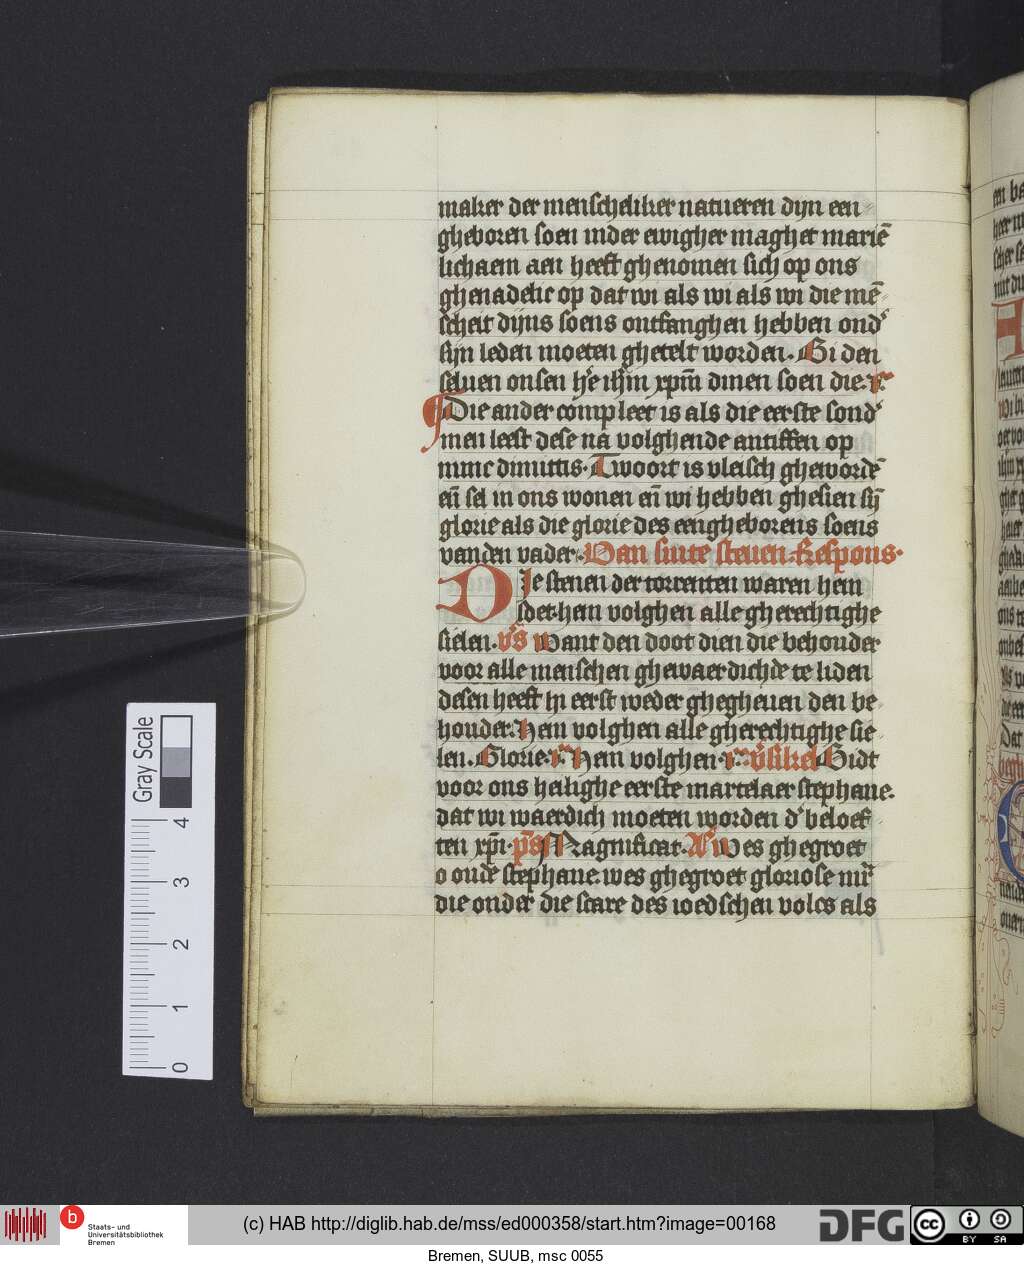 maker der menscheliker natueren dijn een
gheboren soen inder ewigher maghet mariē
lichaem aen heeft ghenomen sich op ons
ghenadelic op dat wi als wi als wi die mē
scheit dijns soens ontfanghen hebben ond'
sijn leden moeten ghetelt worden. Bi den
seluen onsen hr̄e ih̄m xp̄m dinen soen die. r
Die ander compleet is als die eerste sond'
men leest dese na volghende antiffen op
nunc dimittis. Twoort is vleisch ghewordē
eñ sel in ons wonen eñ wi hebben ghesien sij̄
glorie als die glorie des eengheborens soens
vanden vader. Van sinte steuen. Respons.
Die stenen der torrenten waren hem
soet. hem volghen alle gherechtighe
sielen. v̄s Want den doot dien die behouder
voor alle menschen ghewaerdichde te liden
desen heeft hi eerst weder ghegheuen den be
houder. Hem volghen alle gherechtighe sie
len. Glorie. r̄ Hem volghen. v̄sikel Bidt
voor ons heilighe eerste martelaer stephane.
dat wi waerdich moeten worden d' beloef
ten xp̄i. p̄s Magnificat. Añ Wes ghegroet
o oude stephane. wes ghegroet gloriose mr̄
die onder die scare des ioedschen volcs als
Gray Scale
4
3
2
1
0
b
Staats- und
Universitätsbibliothek
Bremen
(c) HAB http://diglib.hab.de/mss/ed000358/start.htm?image=00168
DFG
cc BY SA
Bremen, SUUB, msc 0055